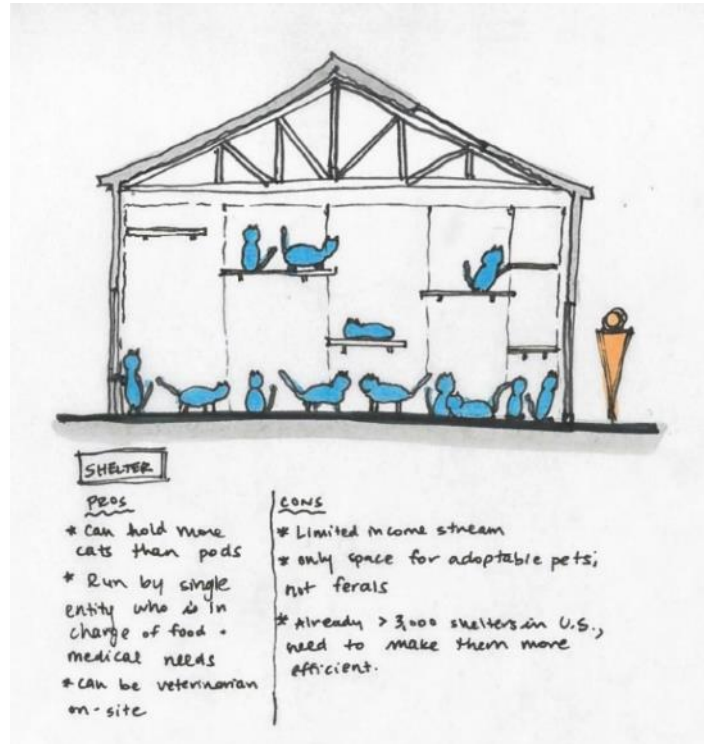 SHELTER
PROS
* Can hold more
cats than pods
* Run by single
entity who is in
charge of food +
medical needs
* can be veterinarian
on-site
CONS
* Limited income stream
* only space for adoptable pets;
not ferals
* Already > 3,000 shelters in U.S.,
need to make them more
efficient.